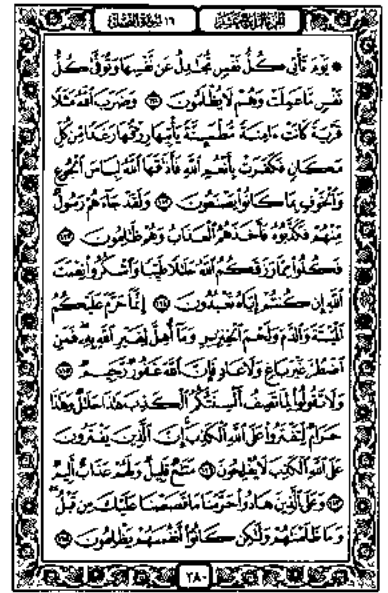 الجزء الرابع عشر ١٦ سورة النحل
۞ يَوْمَ تَأْتِي كُلُّ نَفْسٍ تُجَادِلُ عَن نَّفْسِهَا وَتُوَفَّىٰ كُلُّ
نَفْسٍ مَّا عَمِلَتْ وَهُمْ لَا يُظْلَمُونَ ﴿١١١﴾ وَضَرَبَ اللَّهُ مَثَلًا
قَرْيَةً كَانَتْ آمِنَةً مُّطْمَئِنَّةً يَأْتِيهَا رِزْقُهَا رَغَدًا مِّن كُلِّ
مَكَانٍ فَكَفَرَتْ بِأَنْعُمِ اللَّهِ فَأَذَاقَهَا اللَّهُ لِبَاسَ الْجُوعِ
وَالْخَوْفِ بِمَا كَانُوا يَصْنَعُونَ ﴿١١٢﴾ وَلَقَدْ جَاءَهُمْ رَسُولٌ
مِّنْهُمْ فَكَذَّبُوهُ فَأَخَذَهُمُ الْعَذَابُ وَهُمْ ظَالِمُونَ ﴿١١٣﴾
فَكُلُوا مِمَّا رَزَقَكُمُ اللَّهُ حَلَالًا طَيِّبًا وَاشْكُرُوا نِعْمَتَ
اللَّهِ إِن كُنتُمْ إِيَّاهُ تَعْبُدُونَ ﴿١١٤﴾ إِنَّمَا حَرَّمَ عَلَيْكُمُ
الْمَيْتَةَ وَالدَّمَ وَلَحْمَ الْخِنزِيرِ وَمَا أُهِلَّ لِغَيْرِ اللَّهِ بِهِ فَمَنِ
اضْطُرَّ غَيْرَ بَاغٍ وَلَا عَادٍ فَإِنَّ اللَّهَ غَفُورٌ رَّحِيمٌ ﴿١١٥﴾
وَلَا تَقُولُوا لِمَا تَصِفُ أَلْسِنَتُكُمُ الْكَذِبَ هَٰذَا حَلَالٌ وَهَٰذَا
حَرَامٌ لِّتَفْتَرُوا عَلَى اللَّهِ الْكَذِبَ إِنَّ الَّذِينَ يَفْتَرُونَ
عَلَى اللَّهِ الْكَذِبَ لَا يُفْلِحُونَ ﴿١١٦﴾ مَتَاعٌ قَلِيلٌ وَلَهُمْ عَذَابٌ أَلِيمٌ
﴿١١٧﴾ وَعَلَى الَّذِينَ هَادُوا حَرَّمْنَا مَا قَصَصْنَا عَلَيْكَ مِن قَبْلُ
وَمَا ظَلَمْنَاهُمْ وَلَٰكِن كَانُوا أَنفُسَهُمْ يَظْلِمُونَ ﴿١١٨﴾
٢٨٠